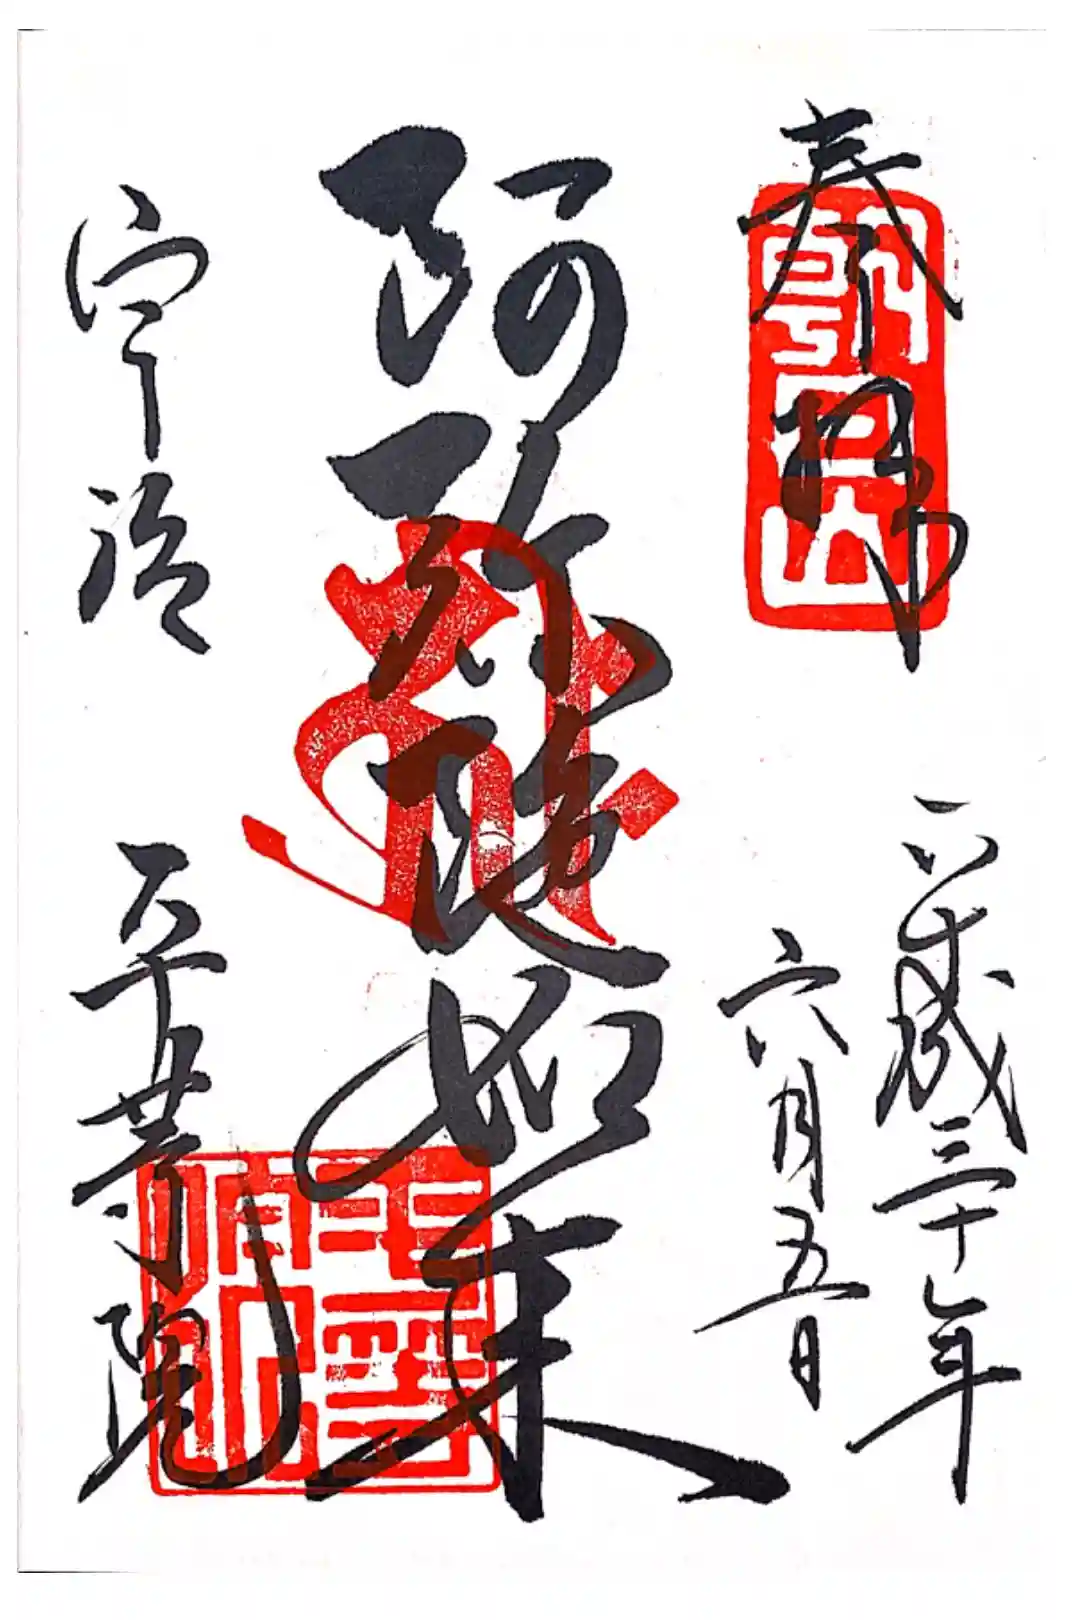 奉拝
朝日山
平成三十年
六月五日
阿弥陀如来
宇治
平等院